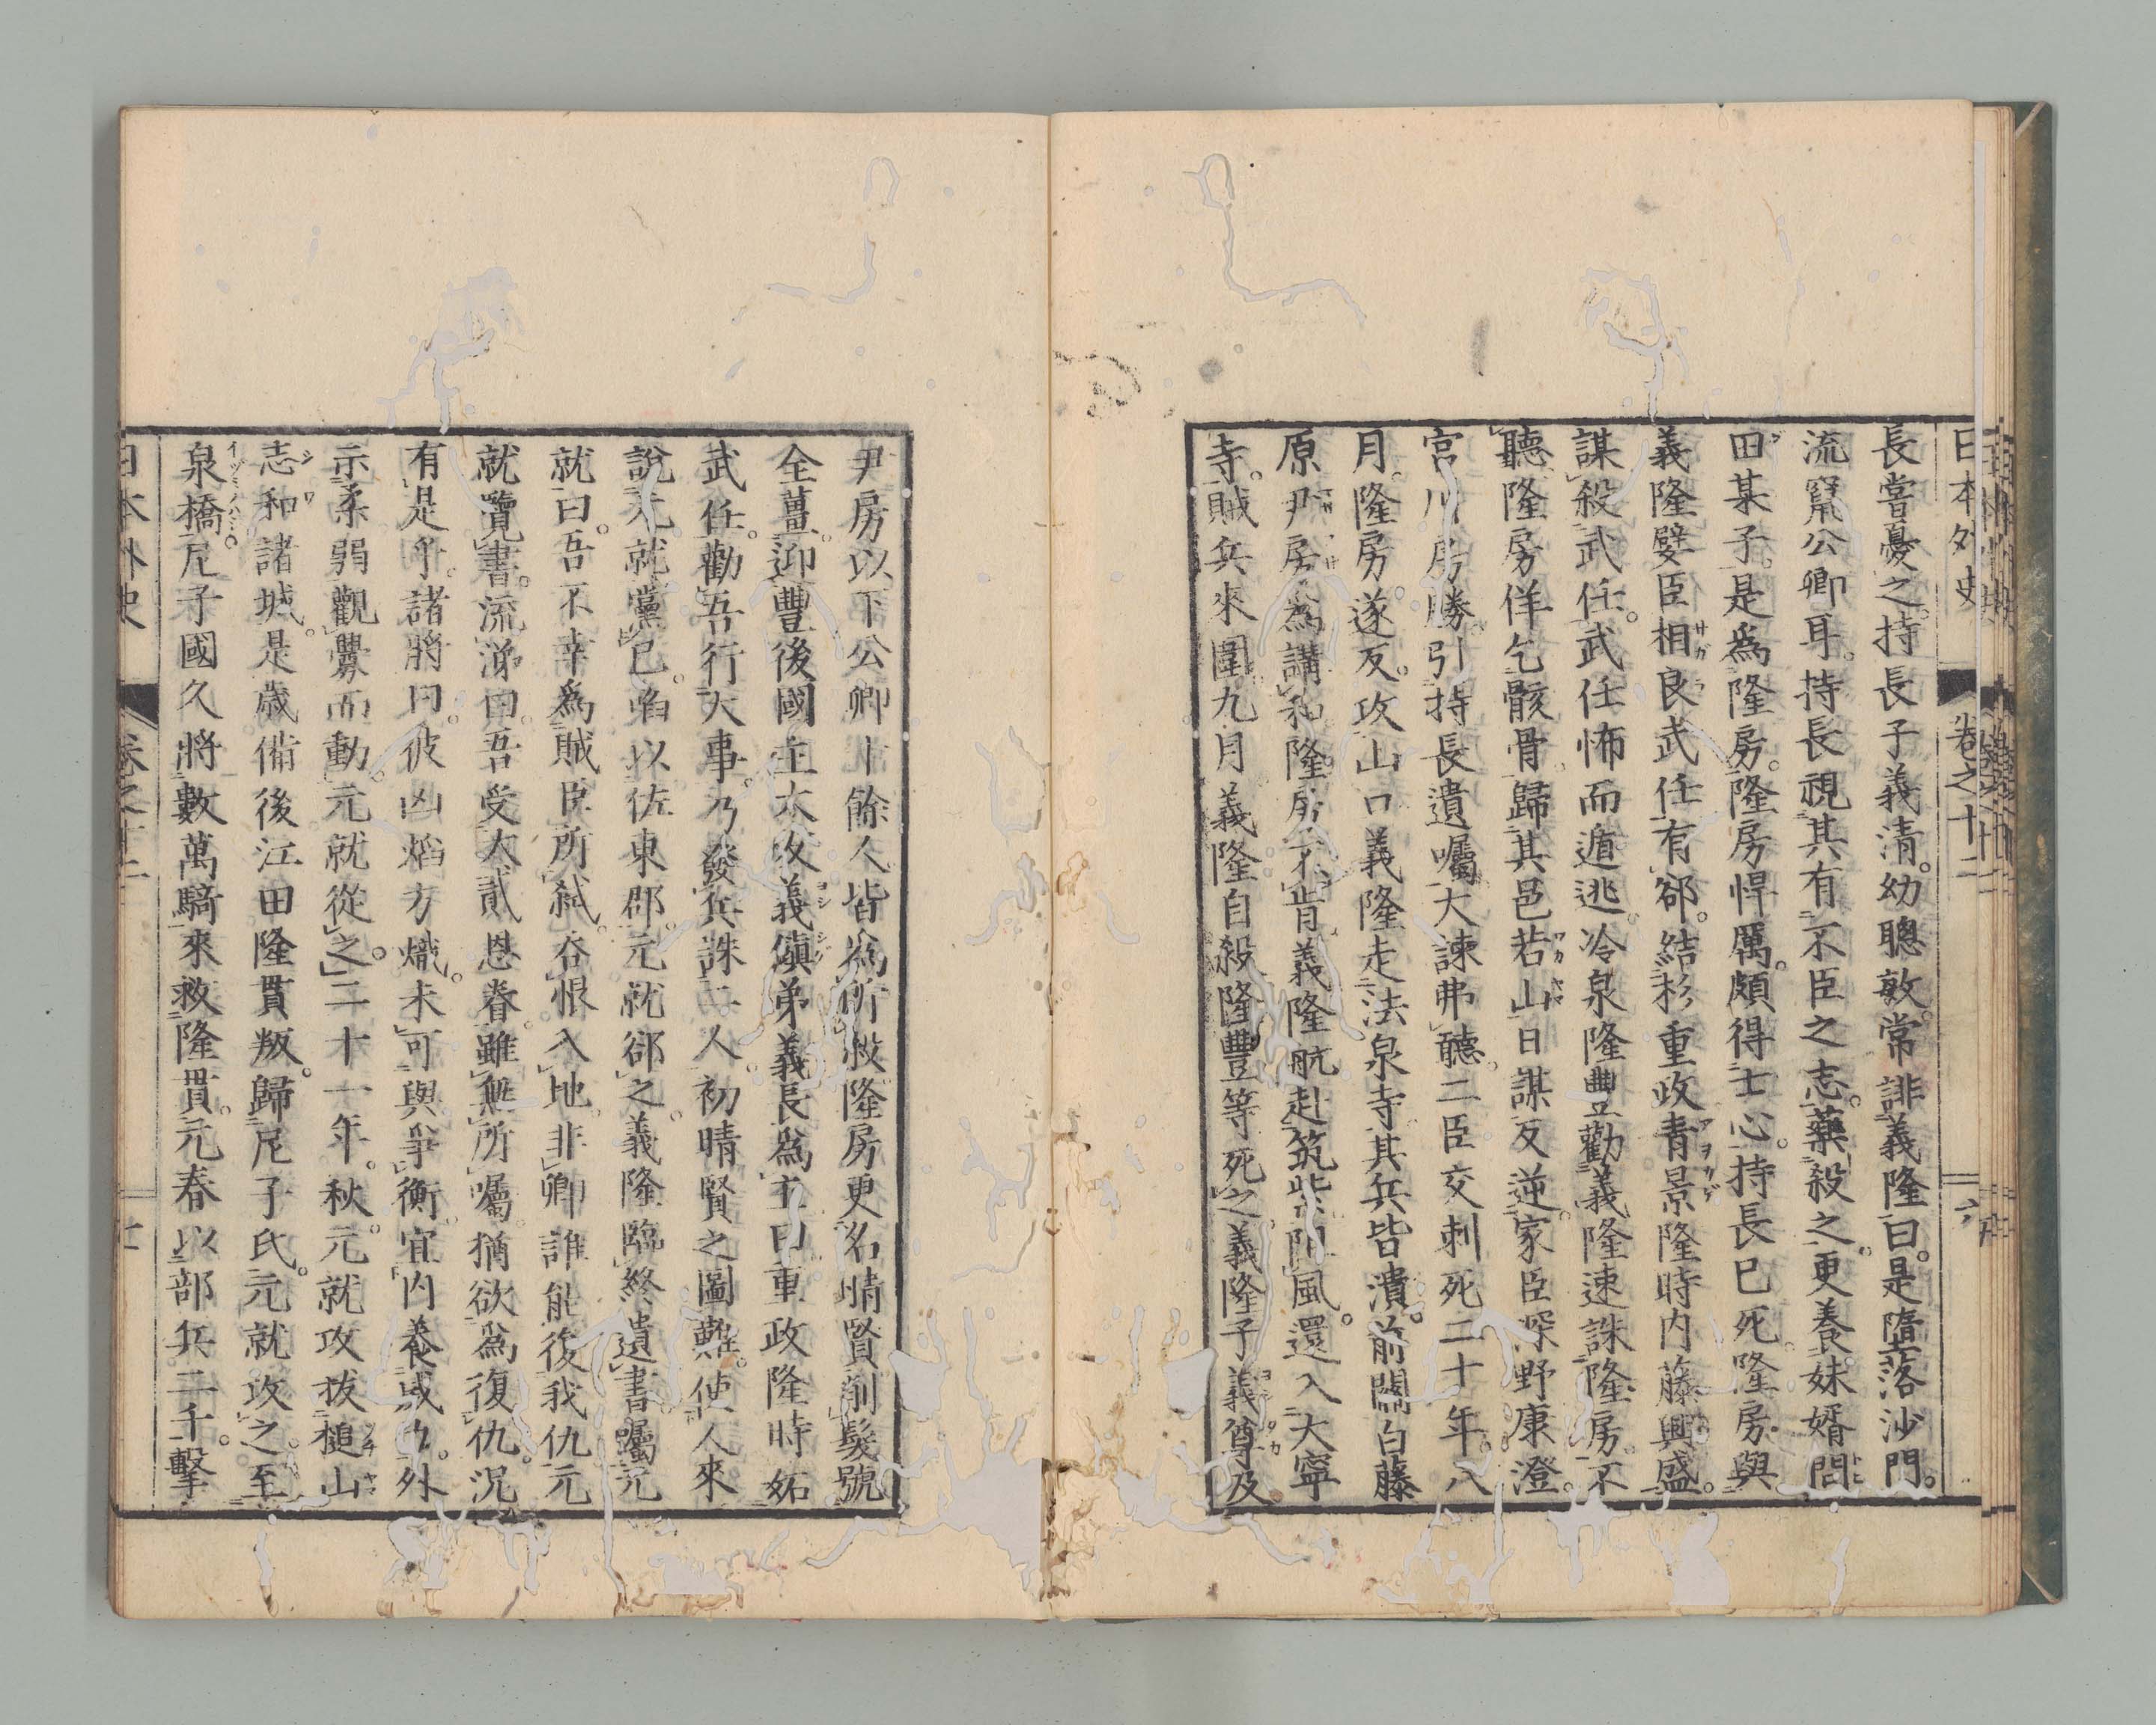 日本外史 卷之十二 六
長嘗憂之。持長子義清。幼聰敏。常誹義隆曰。是墮落沙門。
流竄公卿耳。持長視其有不臣之志。藥殺之。更養妹婿問
田某子。是爲隆房。隆房悍厲。頗得士心。持長已死。隆房與
義隆嬖臣相良武任有郤。結杉重政青景隆時内藤興盛。
謀殺武任。武任怖而遁逃。冷泉隆豊勸義隆速誅隆房。不
聽。隆房佯乞骸骨。歸其邑若山。日謀反逆。家臣深野康澄。
宮川房勝。引持長遺囑。大諫弗聽。二臣交刺死。二十年。八
月。隆房。遂反。攻山口義隆走法泉寺其兵皆潰。前關白藤
原尹房爲講和。隆房不肯。義隆航赴筑紫。阻風。還入大寧
寺。賊兵來圍。九月義隆自殺。隆豊等死之。義隆子義尊及
尹房以下公卿十餘人。皆爲所殺隆房更名晴賢。削髮號
全薑。迎豐後國主大友義鎭弟義長爲主曰。重政隆時妬
武任。勸吾行大事。乃發兵誅二人。初晴賢之圖難。使人來
說元就黨已。啗以佐東郡。元就郤之。義隆臨終。遺書囑元
就曰。吾不幸爲賊臣所弑。呑恨入地。非卿誰能復我仇元
就覽書。流涕曰。吾受大貳恩眷。雖無所囑。猶欲爲復仇。況
有是乎。諸將曰。彼凶焰方熾。未可與爭衡。宜内養威力。外
示柔弱觀釁而動。元就從之。二十一年。秋。元就攻拔槌山
志和諸城。是歳備後江田隆貫叛。歸尼子氏。元就攻之。至
泉橋。尼子國久將數萬騎來救隆貫。元春以部兵二千。擊
日本外史 卷之十二 七